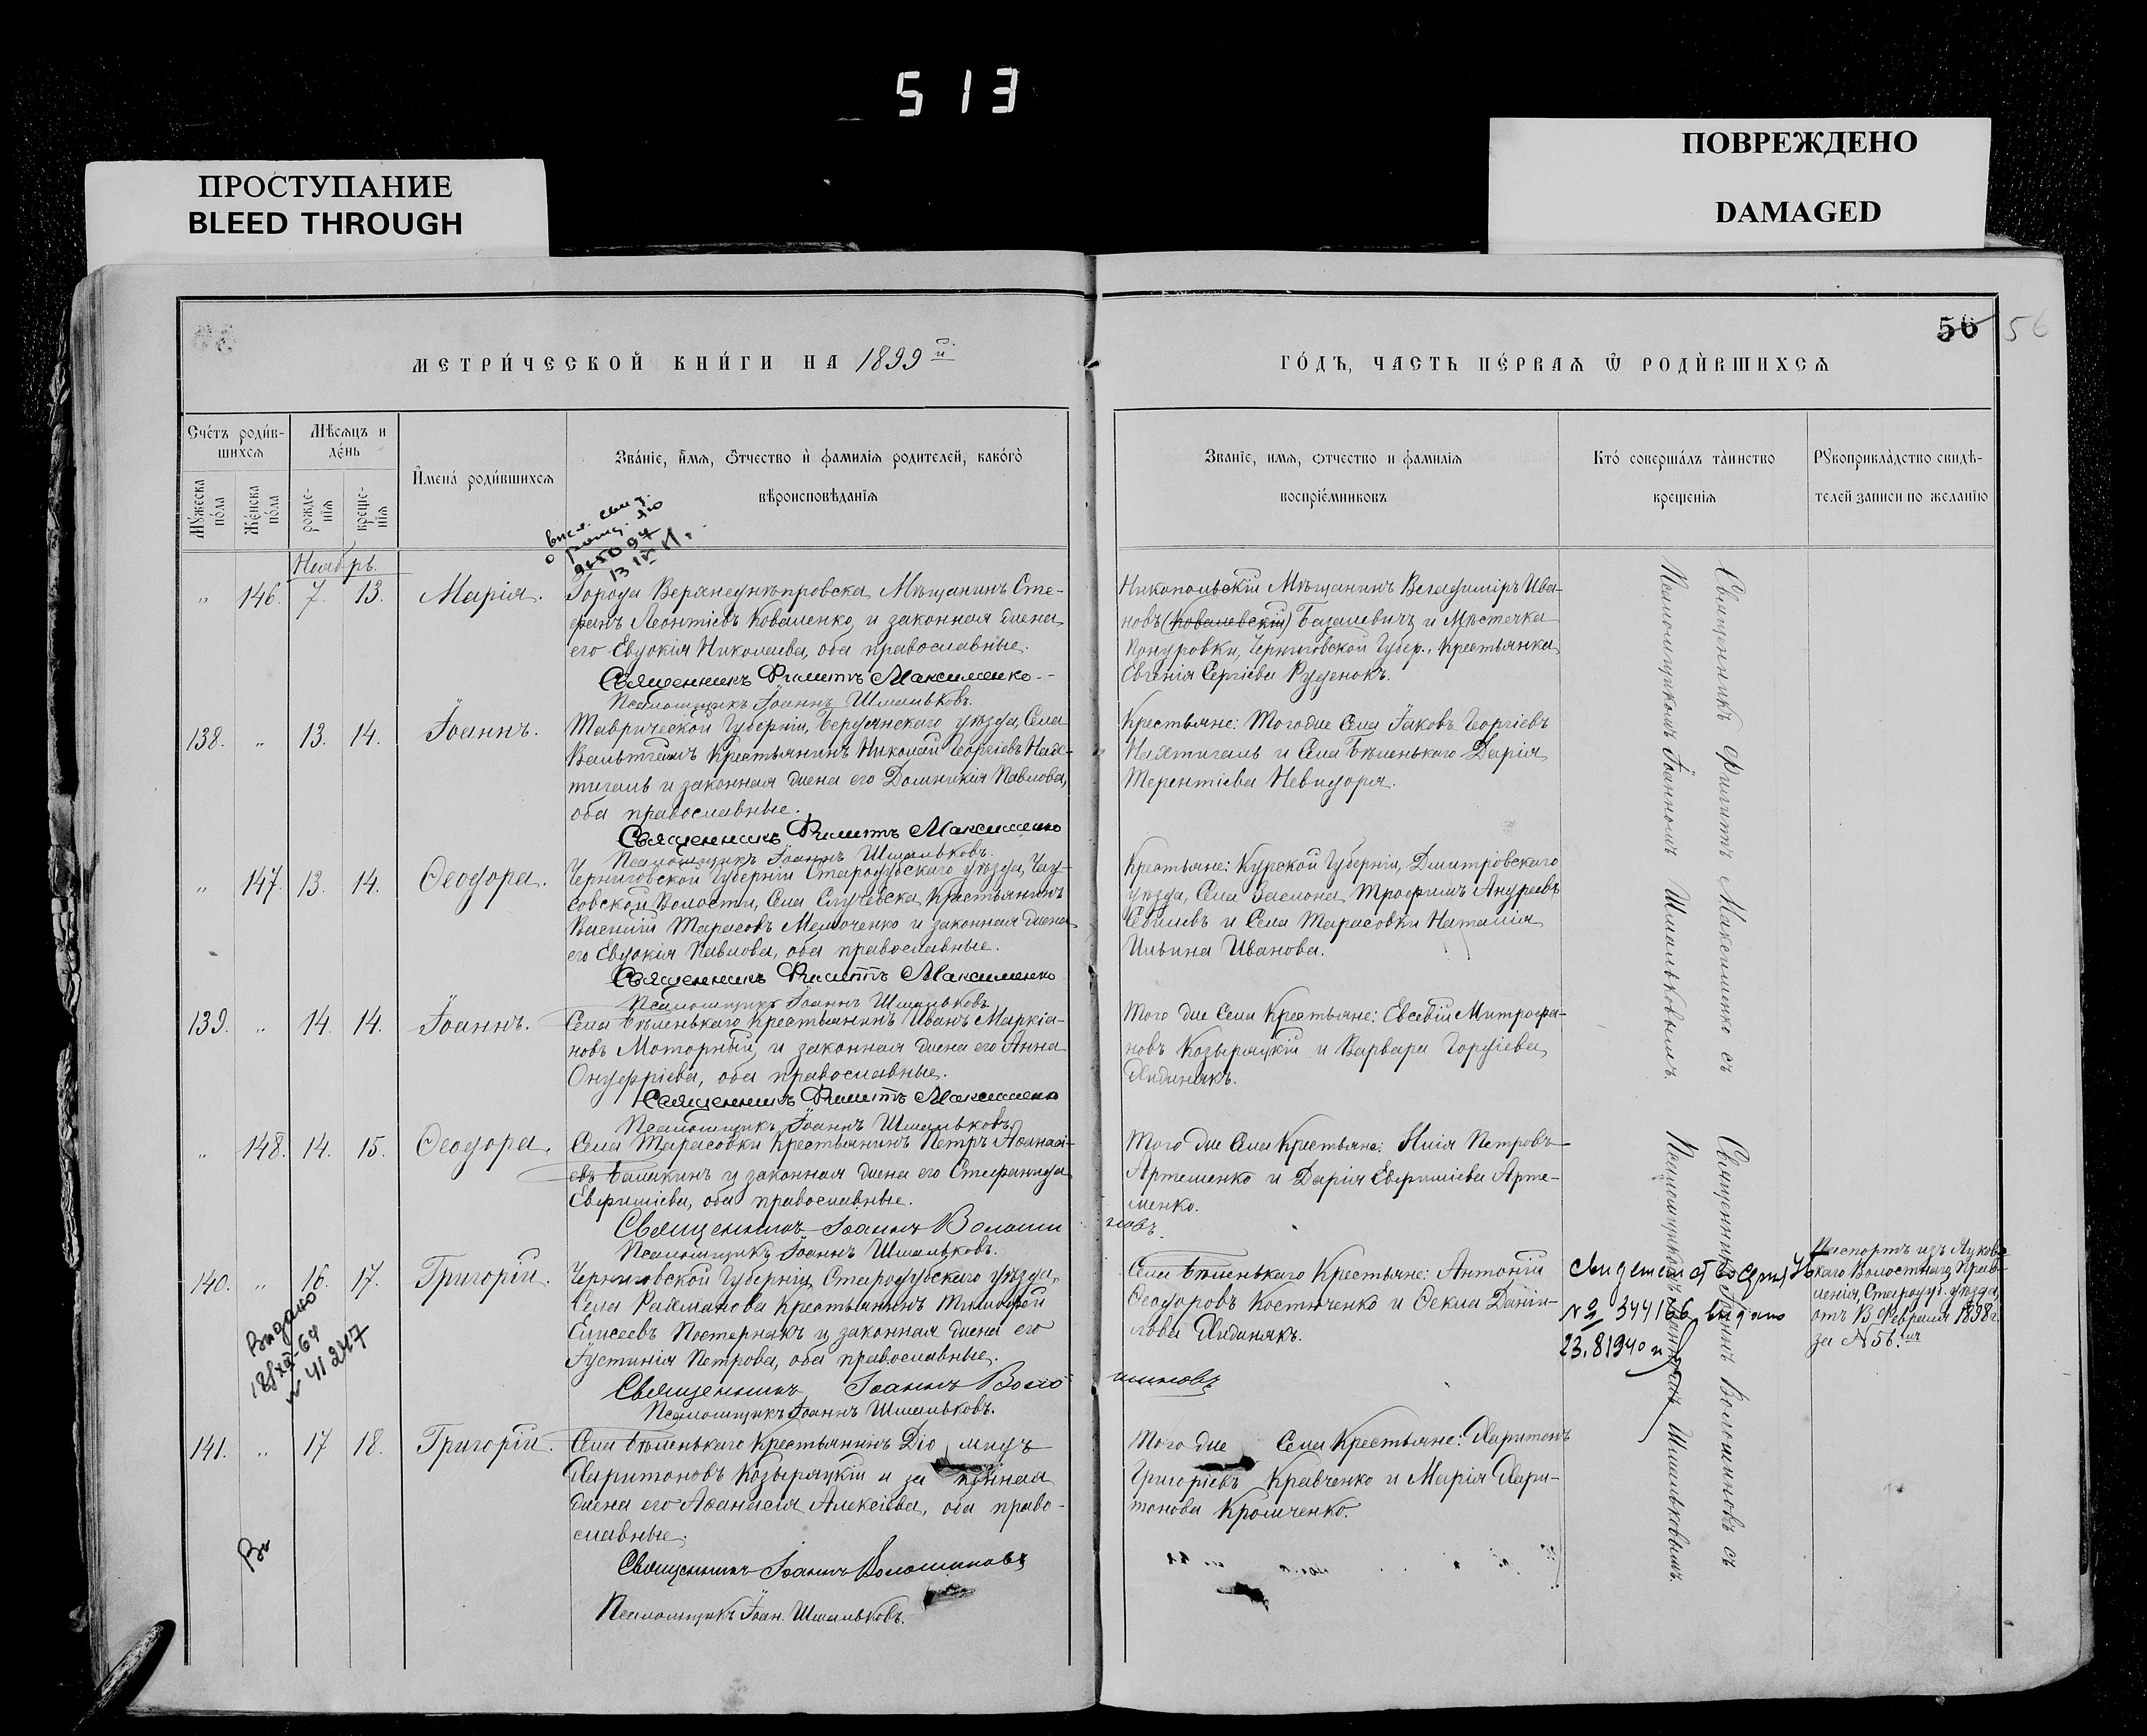 513
ПРОСТУПАНИЕ
BLEED THROUGH
ПОВРЕЖДЕНО
DAMAGED
56
56
МЕТРИ́ЧЕСКОЙ КНИ́ГИ НА 1899 й
ГО́ДЪ, ЧАСТЬ ПЕ́РВАѦ Ѿ РОДИ́ВШИХСѦ
Сче́тъ роди́в-
шихсѧ
Мꙋжеска по́ла
Же́нска по́ла
Мѣсѧцъ и
де́нь
рожде-
нїѧ
креще-
нїѧ
И҆мена̀ роди́вшихсѧ
Зва́нїе, и҆́мѧ, Ѻ҆́тчество и҆ фамилїѧ родителей, како́гѡ
вѣроисповѣданїѧ
Званїе, имѧ, ѻтчество и фамилїѧ
воспрїе́мниковъ
Кто̀ соверша́лъ та̀инство
крещенїѧ
Рꙋкоприкла̀дство свидѣ-
телей записи по желанїю
Ноябрь.
" 146. 7. 13. Марія.
Города Верхнеднѣпровска Мѣщанинъ Сте-
фанъ Леонтіевъ Коваленко и законная жена
его Евдокія Николаева, оба православные.
Священникъ Филиппъ Максименко
Псаломщикъ Іоаннъ Шмальковъ.
Никопольскій Мѣщанинъ Владиміръ Ива-
новъ (Ковалевскій) Базалевичъ и Мѣстечка
Понуровки, Черниговской Губер., Крестьянка
Евгенія Сергіева Руденокъ.
138. " 13. 14. Іоаннъ.
Таврической Губерніи, Бердянскаго уѣзда, Села
Вальтгеимъ Крестьянинъ Николай Георгіевъ Нахт-
тигаль и законная жена его Домникія Павлова,
оба православные.
Священникъ Филиппъ Максименко
Псаломщикъ Іоаннъ Шмальковъ.
Крестьяне: Тогоже Села Іаковъ Георгіевъ
Нахтигаль и Села Бѣленькаго Дарія
Терентіева Невидоря.
" 147. 13. 14. Ѳеодора.
Черниговской Губерніи Стародубскаго уѣзда, Чау-
совской Волости, Села Случевска Крестьянинъ
Василій Тарасовъ Мелюченко и законная жена
его Евдокія Павлова, оба православные.
Священникъ Филиппъ Максименко
Псаломщикъ Іоаннъ Шмальковъ.
Крестьяне: Курской Губерніи, Дмитріовскаго
уѣзда, Села Заслона, Трофимъ Андреевъ
и Села Тарасовки Наталія
Ильина Иванова.
139. " 14. 14. Іоаннъ.
Села Бѣленькаго Крестьянинъ Иванъ Маркіа-
новъ Моторный и законная жена его Анна
Онуфріева, оба православные.
Священникъ Филиппъ Максименко
Псаломщикъ Іоаннъ Шмальковъ.
Того же Села Крестьяне: Евсевій Митрофа-
новъ Козыряцкій и Варвара Гордіева
Хидинякъ.
" 148. 14. 15. Ѳеодора.
Села Тарасовки Крестьянинъ Петръ Аѳанасі-
евъ Башкинъ и законная жена его Стефанида
Евфиміева, оба православные.
Священникъ Іоаннъ Волоши
новъ.
Псаломщикъ Іоаннъ Шмальковъ.
Того же Села Крестьяне: Илія Петровъ
Артеменко и Дарія Евфиміева Арте-
менко.
140. " 16. 17. Григорій.
Черниговской Губерніи, Стародубскаго уѣзда,
Села Рахманова Крестьянинъ Тимоѳей
Елисеевъ Постернакъ и законная жена его
Іустинія Петрова, оба православные.
Священникъ Іоаннъ Воло
шиновъ
Псаломщикъ Іоаннъ Шмальковъ.
Села Бѣленькаго Крестьяне: Антоній
Ѳеодоровъ Костюченко и Ѳекла Даніи-
лова Хидинякъ.
№ 344166 видано
23.8.1940 г
Паспортъ изъ Луков-
скаго Волостнаго Прав-
ленія, Стародуб. уѣзда,
отъ 13 Февраля 1898 г.
за № 56.
Видано
64
41247
141. " 17 18. Григорій.
Села Бѣленькаго Крестьянинъ Діо мидъ
Харитоновъ Козыряцкій и за конная
жена его Аѳанасія Алексіева, оба право-
славные.
Священникъ Іоаннъ Волошиновъ
Псаломщикъ Іоан. Шмальковъ.
Того же Села Крестьяне: Харитонъ
Григоріевъ Кравченко и Марія Хари-
тонова Кромченко.
Ви
Священникъ Филиппъ Максименко съ
Псаломщикомъ Іоанномъ Шмальковымъ.
Священникъ Іоаннъ Волошиновъ съ
Псаломщикомъ Іоанномъ Шмальковымъ.